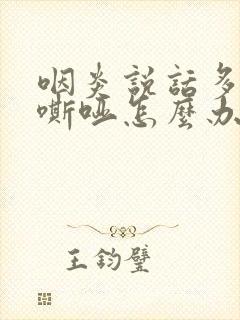 咽炎説話多
嘶啞怎麼办
王鈞璧